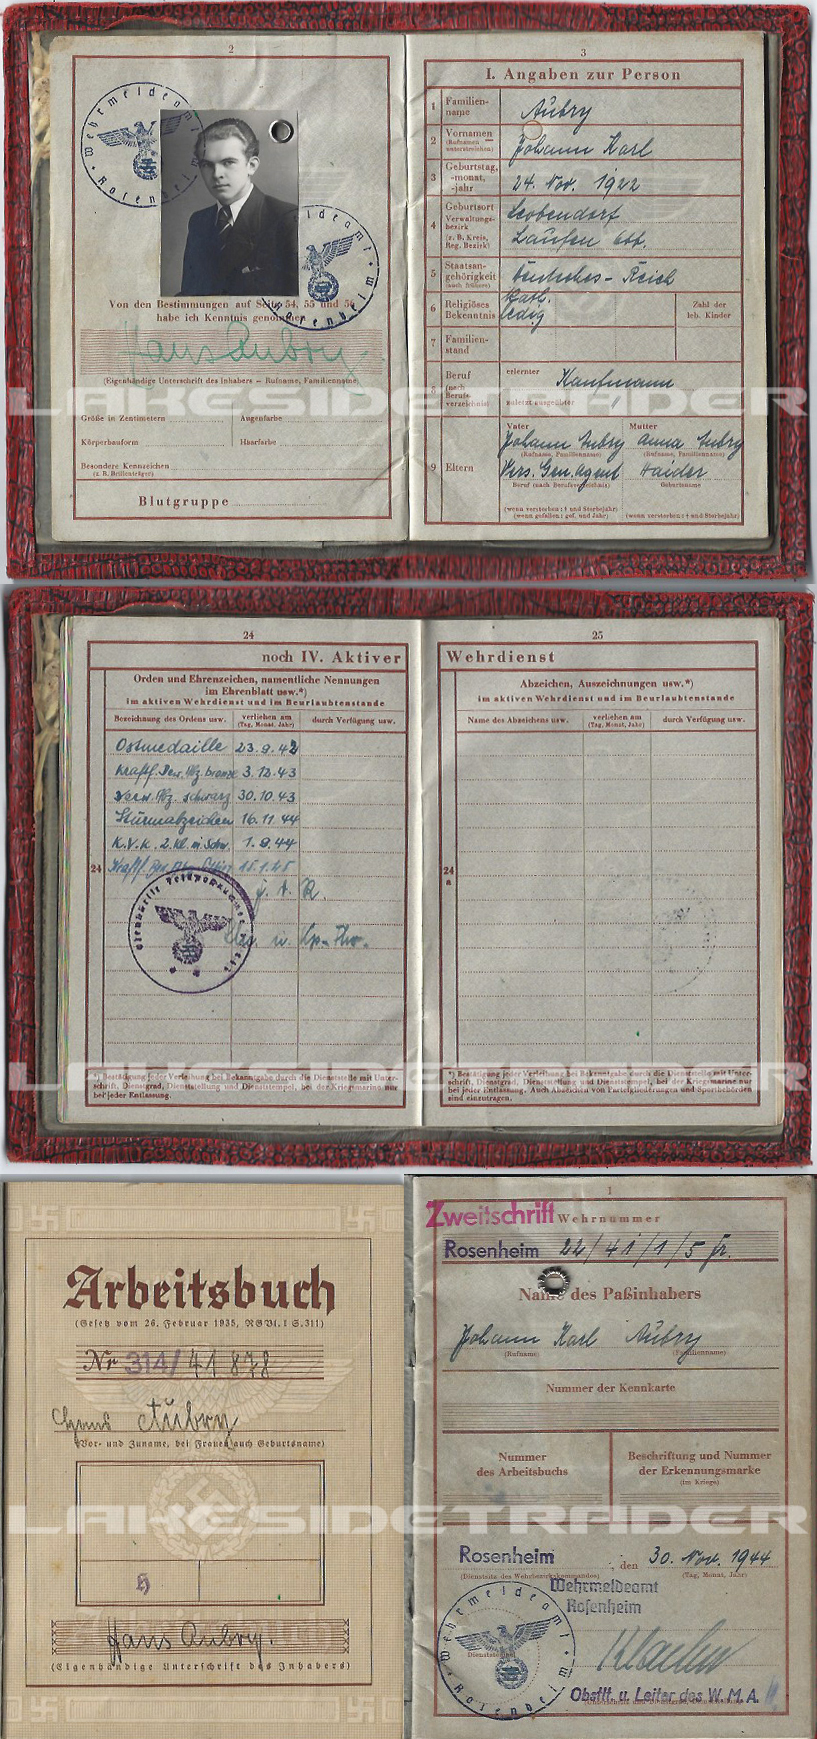 2
Wehrmeldeamt
Rosenheim
Wehrmeldeamt
Rosenheim
Von den Bestimmungen auf Seite 54, 55 und 56
habe ich Kenntnis genommen
Hans Aubry.
(Eigenhändige Unterschrift des Inhabers – Rufname, Familienname)
Größe in Zentimetern
Augenfarbe
Körperbauform
Haarfarbe
Besondere Kennzeichen
(z. B. Brillenträger)
Blutgruppe
3
I. Angaben zur Person
1 Familien-
name
Aubry
2 Vornamen
(Rufnamen
unterstreichen)
Johann Karl
3 Geburtstag,
-monat,
-jahr
24. Nov. 1922
4 Geburtsort
Verwaltungs-
bezirk
(z. B. Kreis,
Reg. Bezirk)
Leobendorf
Laufen Obb.
5 Staatsan-
gehörigkeit
(auch frühere)
Deutsches-Reich
6 Religiöses
Bekenntnis
Kath.
ledig
Zahl der
leb. Kinder
7 Familien-
stand
8 Beruf
(nach
Berufs-
verzeichnis)
erlernter
Kaufmann
zuletzt ausgeübter
9 Eltern
Vater
Johann Aubry
(Rufname, Familienname)
Vers. Gen. Agent
Beruf (nach Berufsverzeichnis)
(wenn verstorben: † und Sterbejahr)
(wenn gefallen: gef. und Jahr)
Mutter
Anna Aubry
(Rufname, Familienname)
Haider
Geburtsname
(wenn verstorben: † und Sterbejahr)
LAKESIDETRADER
24
noch IV. Aktiver
Orden und Ehrenzeichen, namentliche Nennungen
im Ehrenblatt usw.*)
im aktiven Wehrdienst und im Beurlaubtenstande
Bezeichnung des Ordens usw.
verliehen am
(Tag, Monat, Jahr)
durch Verfügung usw.
Ostmedaille 23.9.42
Kraftf. Bew. Abz. bronze 3.12.43
Verw. Abz. schwarz 30.10.43
Sturmabzeichen 16.11.44
K.V.K. 2. Kl. m. Schw. 1.9.44
15.1.45
24
*) Bestätigung jeder Verleihung bei Bekanntgabe durch die Dienststelle mit Unter-
schrift, Dienstgrad, Dienststellung und Dienststempel, bei der Kriegsmarine nur
bei jeder Entlassung.
25
Wehrdienst
Abzeichen, Auszeichnungen usw.*)
im aktiven Wehrdienst und im Beurlaubtenstande
Name des Abzeichens usw.
verliehen am
(Tag, Monat, Jahr)
durch Verfügung usw.
24
a
*) Bestätigung jeder Verleihung bei Bekanntgabe durch die Dienststelle mit Unter-
schrift, Dienstgrad, Dienststellung und Dienststempel, bei der Kriegsmarine nur
bei jeder Entlassung. Auch Abzeichen von Parteigliederungen und Sportbehörden
sind einzutragen.
LAKESIDETRADER
Arbeitsbuch
(Gesetz vom 26. Februar 1935, RGBl. I S. 311)
Nr 314/41878
Hans Aubry
(Vor- und Zuname, bei Frauen auch Geburtsname)
H
Hans Aubry.
(Eigenhändige Unterschrift des Inhabers)
1
Zweitschrift
Wehrnummer
Rosenheim 22/41/1/5 fr.
Name des Paßinhabers
Johann Karl Aubry
(Rufname) (Familienname)
Nummer der Kennkarte
Nummer
des Arbeitsbuchs
Beschriftung und Nummer
der Erkennungsmarke
(im Kriege)
Rosenheim, den 30. Nov. 1944
(Dienstsitz des Wehrbezirkskommandos) (Tag, Monat, Jahr)
Wehrmeldeamt
Rosenheim
Wehrmeldeamt
Rosenheim
Dienststempel
Obstlt. u. Leiter des W.M.A.
LAKESIDETRADER